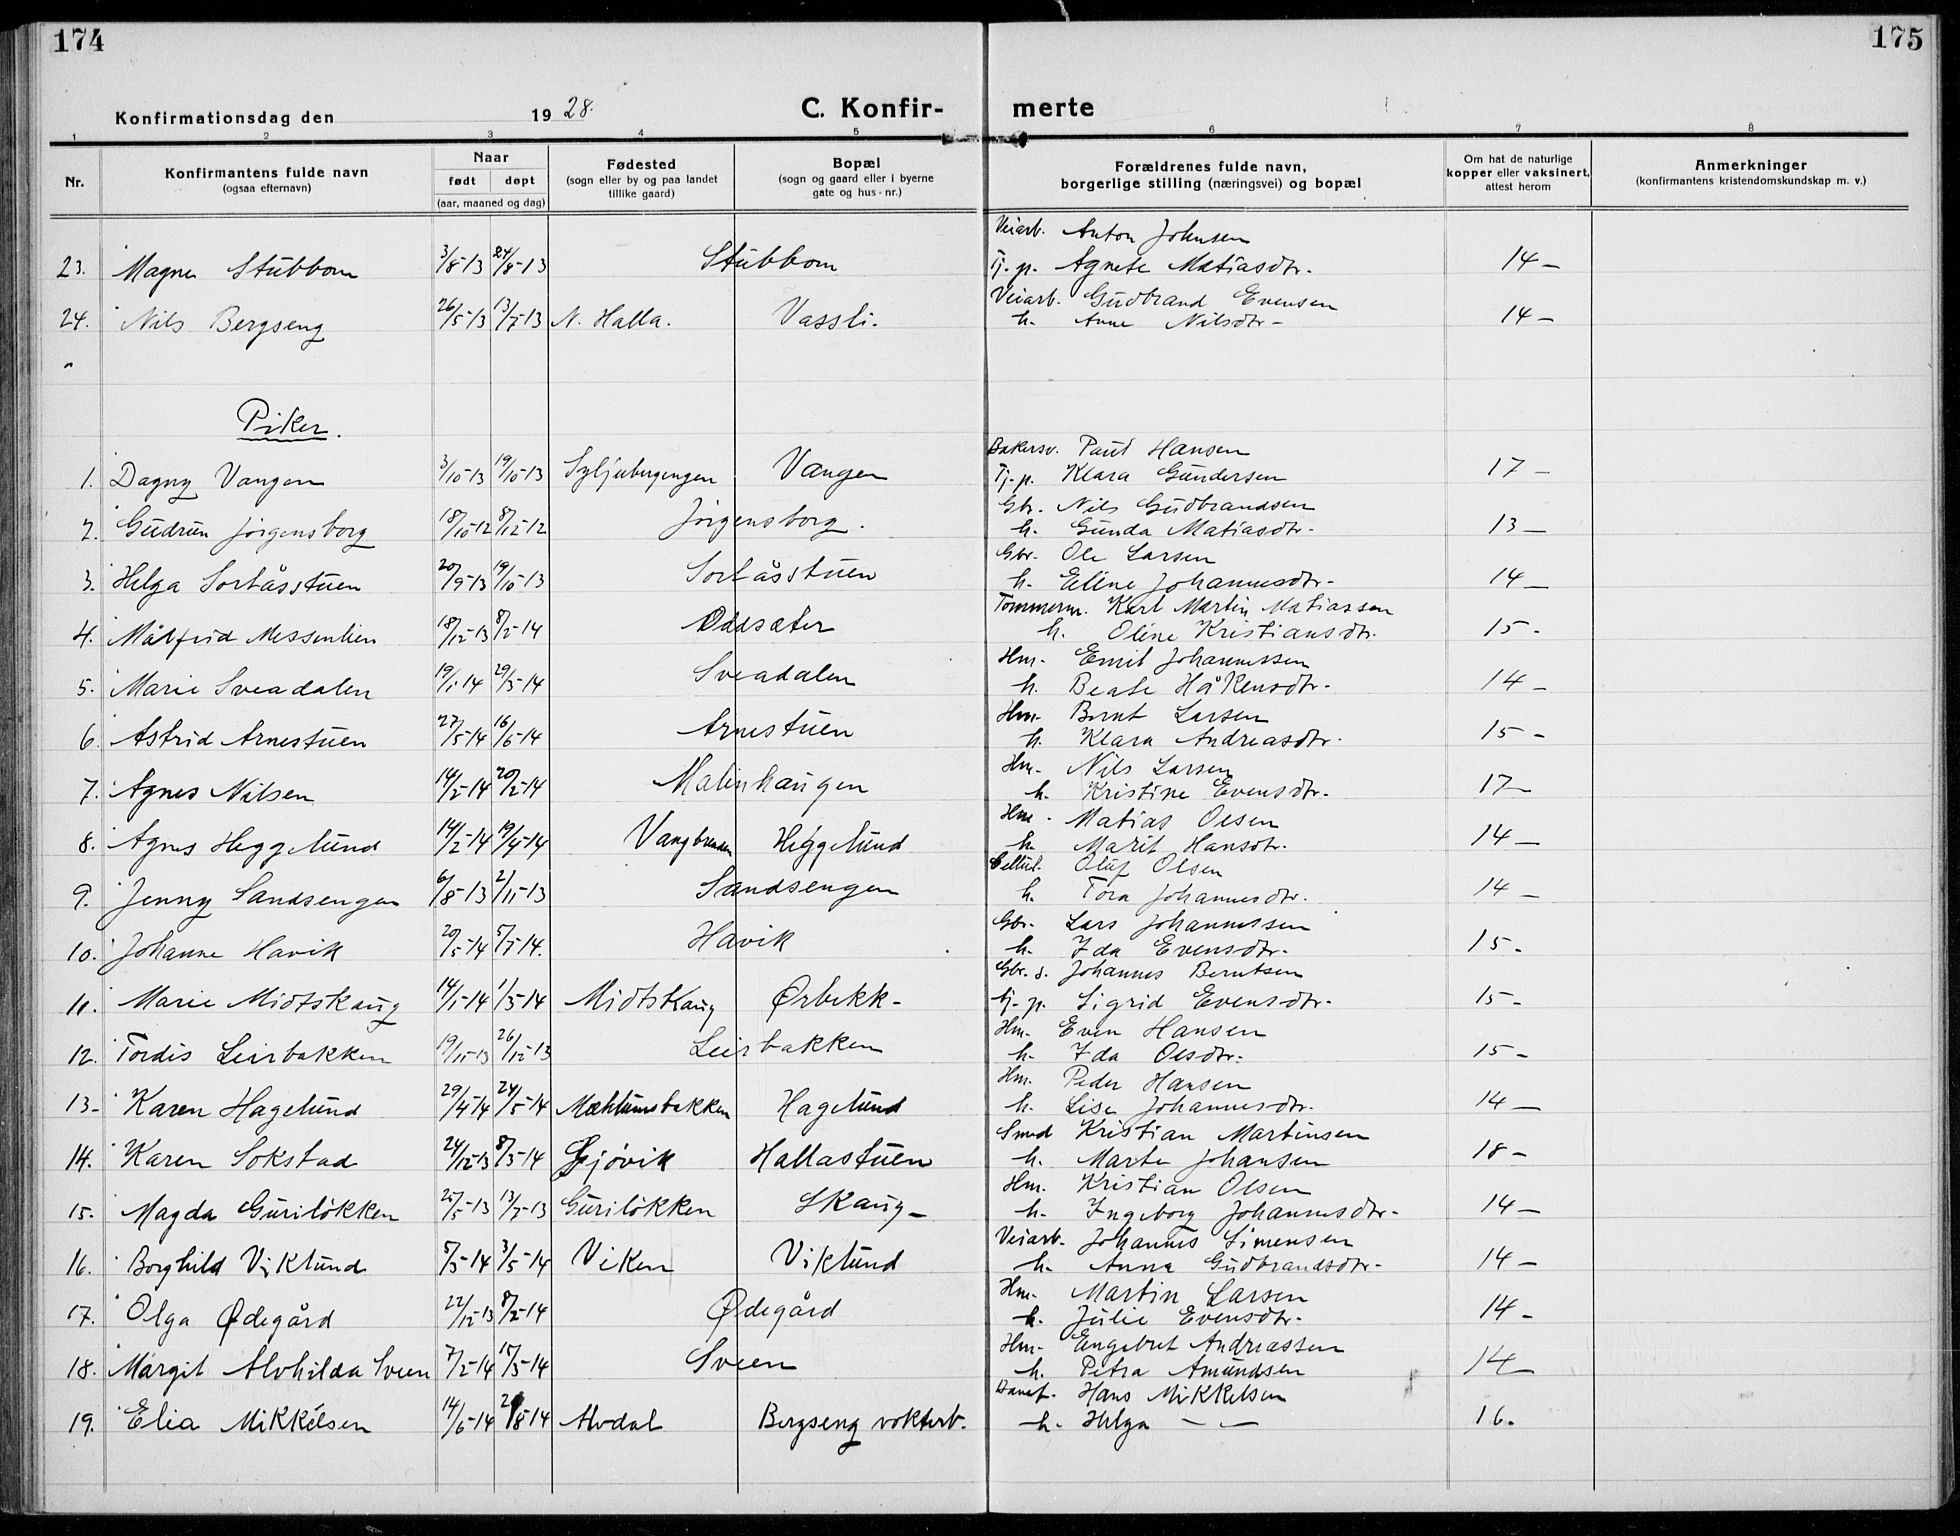 174
175
Konfirmationsdag den 1928.
C. Konfirmerte
1 2 3 4 5 6 7 8
Nr.
Konfirmantens fulde navn
(ogsaa efternavn)
Naar
født døpt
(aar, maaned og dag)
Fødested
(sogn eller by og paa landet
tillike gaard)
Bopæl
(sogn og gaard eller i byerne
gate og hus-nr.)
Forældrenes fulde navn,
borgerlige stilling (næringsvei) og bopæl
Om hat de naturlige
kopper eller vaksinert,
attest herom
Anmerkninger
(konfirmantens kristendomskundskap m. v.)
Veiarb. Anton Johnsen
23. Magne Stubbom 3/8-13 24/8-13 Stubbom Tj.p. Agnete Matiasdtr. 14 -
Veiarb. Gudbrand Evensen
24. Nils Bergseng 26/5-13 13/7-13 N. Halla. Vassli. h. Anne Nilsdtr - 14 -
Piker.
Bakersv. Paul Hansen
1. Dagny Vangen 3/10-13 19/10-13 Vangen Tj.p. Klara Gundersen 17 -
Gbr. Nils Gudbrandsen
2. Gudrun Jörgensborg 18/10-12 8/12-12 Jörgensborg. h. Gunda Matiasdtr. 13 -
Gbr. Ole Larsen
3. Helga Sortåsstuen 20/9-13 19/10-13 Sortåsstuen h. Eline Johannesdtr - 14 -
Tommerm. Karl Martin Matiassen
4. Målfrid Messenlien 18/12-13 8/2-14 Oddsæter h. Oline Kristiansdtr. 15 -
Hm. Emil Johannessen
5. Marie Sveadalen 19/1-14 29/3-14 Sveadalen h. Beate Håkensdtr - 14 -
Hm. Bernt Larsen
6. Astrid Arnestuen 27/5-14 16/6-14 Arnestuen h. Klara Andreasdtr. 15 -
Hm. Nils Larsen
7. Agnes Nilsen 14/2-14 20/2-14 Malinhaugen h. Kristine Evensdtr. 17 -
Hm. Matias Olsen
8. Agnes Heggelund 14/2-14 19/4-14 Vangbraaten Heggelund h. Marit Hansdtr. 14 -
Cellul. Oluf Olsen
9. Jenny Sandsengen 6/8-13 2/11-13 Sandsengen h. Tora Johannesdtr. 14 -
Gbr. Lars Johannessen
10. Johanne Havik 20/5-14 5/7-14. Havik h. Ida Evensdtr. 15 -
Gbr. s. Johannes Berntsen
11. Marie Midtskaug 14/1-14 1/3-14 Midtskaug Ørbekk - tj. p. Sigrid Evensdtr. 15 -
Hm. Even Hansen
12. Tordis Leirbakken 19/11-13 26/12-13 Leirbakken h. Ida Olsdtr. 15 -
Hm. Peder Hansen
13. Karen Hagelund 29/4-14 24/5-14 Mæhlumsbakken Hagelund h. Lise Johannesdtr. 14 -
Smed Kristian Martinsen
14. Karen Sokstad 24/12-13 8/3-14 Gjövik Hallastuen h. Marte Johansen 18 -
Hm. Kristian Olsen
15. Magda Gurilökken 25/5-13 13/7-13 Gurilökken Skaug - h. Ingeborg Johannesdtr - 14 -
Veiarb. Johannes Simensen
16. Borghild Viklund 5/3-14 3/5-14 Viken Viklund h. Anna Gudbrandsdtr - 14 -
Hm. Martin Larsen
17. Olga Ødegård 22/12-13 8/2-14 Ødegård h. Julie Evensdtr. 14 -
Hm. Engebret Andreassen
18. Margit Alvhilda Sveen 7/2-14 15/3-14 Sveen h. Petra Amundsen 14 -
Banef. Hans Mikkelsen
19. Elia Mikkelsen 14/6-14 2/8-14 Alvdal Bergseng vokterb. h. Helga - - 16.